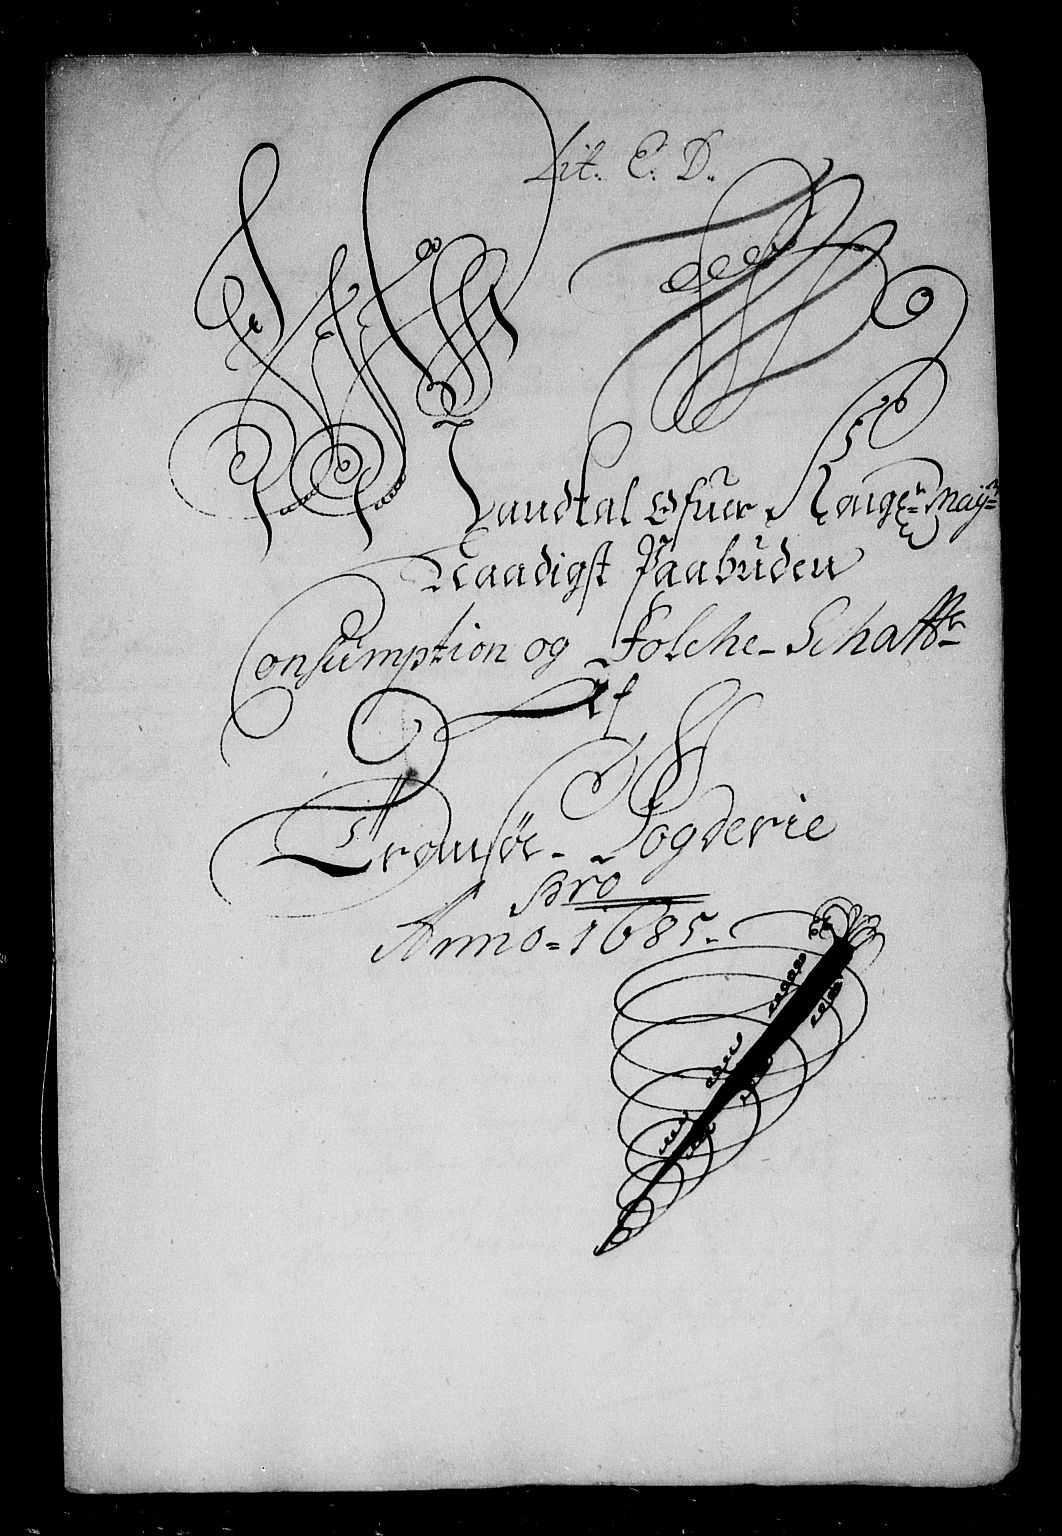 Lit. C. D.
Mandtal Ofuer Kongr: Mayts
Naadigst Paabuden
Consumption og Folche-Schatter
Af
Tromsøe-Fogderie
Pro
Anno-1685.